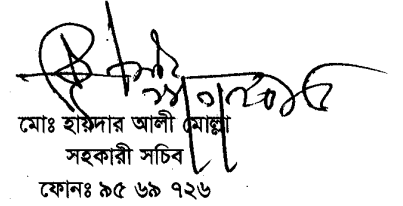 মোঃ হায়দার আলী মোল্লা
সহকারী সচিব
ফোনঃ ৯৫ ৬৯ ৭২৬